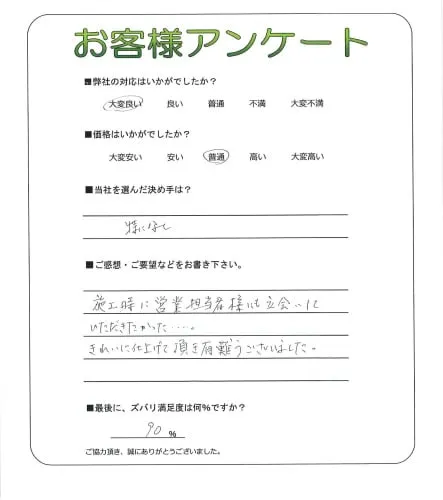 お客様アンケート
■弊社の対応はいかがでしたか？
大変良い 良い 普通 不満 大変不満
■価格はいかがでしたか？
大変安い 安い 普通 高い 大変高い
■当社を選んだ決め手は？
特になし
■ご感想・ご要望などをお書き下さい。
施工時に営業担当者様にも立会いして
いただきたかった……。
きれいに仕上げて頂き有難うございました。
■最後に、ズバリ満足度は何%ですか？
90 %
ご協力頂き、誠にありがとうございました。